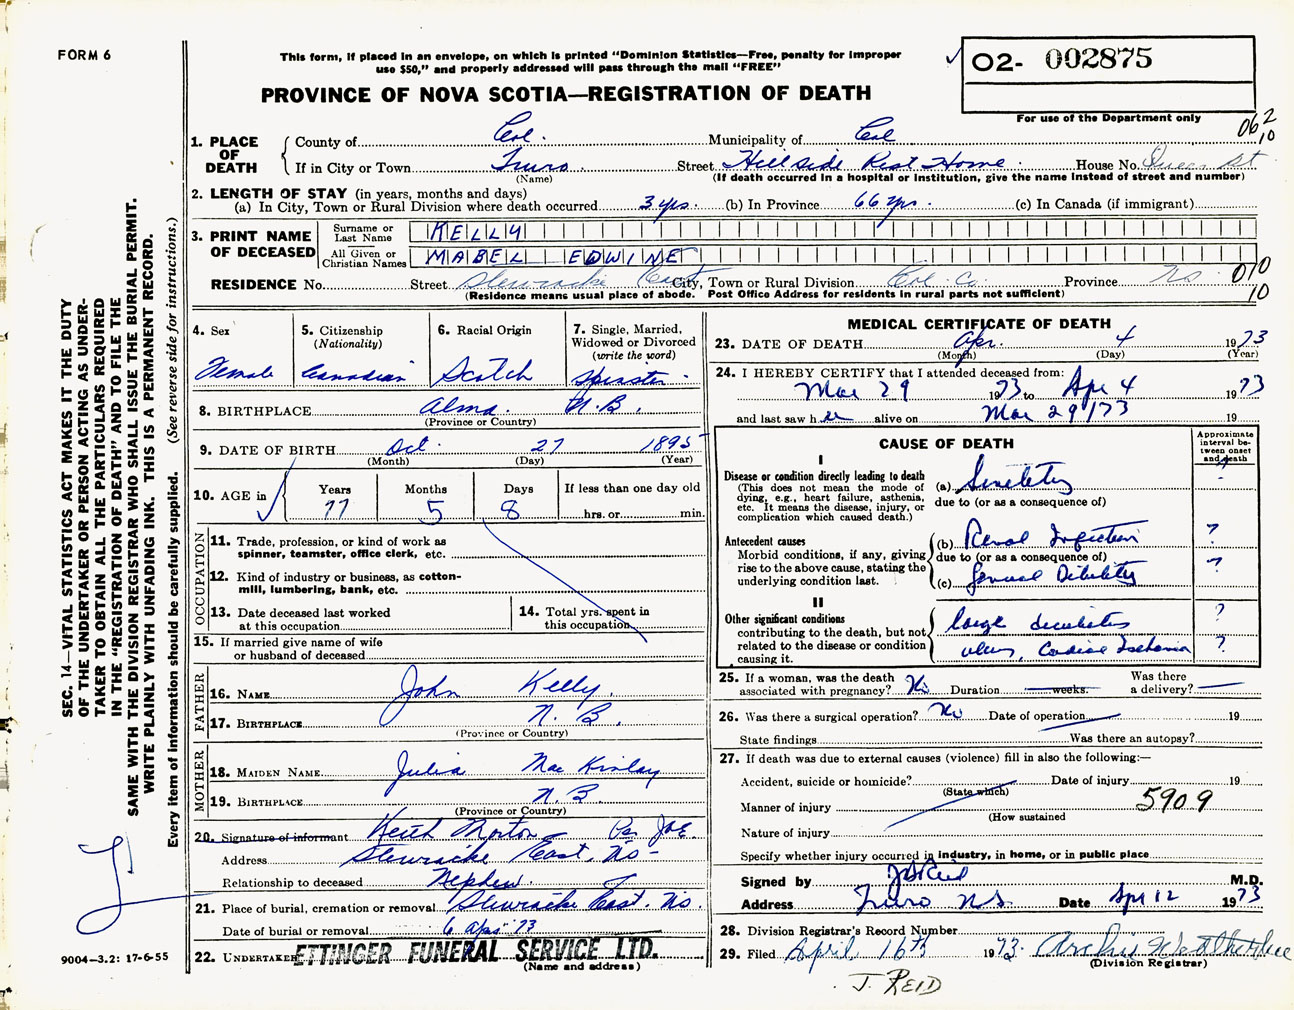 FORM 6
This form, if placed in an envelope, on which is printed "Dominion Statistics—Free, penalty for improper
use $50," and properly addressed will pass through the mail "FREE"
O2- 002875
PROVINCE OF NOVA SCOTIA—REGISTRATION OF DEATH
For use of the Department only
062
10
1. PLACE OF DEATH { County of Col. Municipality of Col
If in City or Town Truro Street Hillside Rest Home House No. Queen St
(Name) (If death occurred in a hospital or institution, give the name instead of street and number)
2. LENGTH OF STAY (in years, months and days)
(a) In City, Town or Rural Division where death occurred 3 yrs. (b) In Province 66 yrs. (c) In Canada (if immigrant)
3. PRINT NAME OF DECEASED
Surname or Last Name KELLY
All Given or Christian Names MABEL EDWINE
RESIDENCE No. Street Stewiacke East City, Town or Rural Division Col. Co. Province NS
(Residence means usual place of abode. Post Office Address for residents in rural parts not sufficient)
010
10
4. Sex
Female
5. Citizenship
(Nationality)
Canadian
6. Racial Origin
Scotch
7. Single, Married,
Widowed or Divorced
(write the word)
Spinster
8. BIRTHPLACE Alma. N.B.
(Province or Country)
9. DATE OF BIRTH Oct 27 1895
(Month) (Day) (Year)
10. AGE in
Years Months Days If less than one day old
77 5 8 hrs. or min.
OCCUPATION
11. Trade, profession, or kind of work as
spinner, teamster, office clerk, etc.
12. Kind of industry or business, as cotton-
mill, lumbering, bank, etc.
13. Date deceased last worked
at this occupation
14. Total yrs. spent in
this occupation
15. If married give name of wife
or husband of deceased
FATHER
16. NAME John Kelly
17. BIRTHPLACE N. B.
(Province or Country)
MOTHER
18. MAIDEN NAME Julia MacKinlay
19. BIRTHPLACE N. B.
(Province or Country)
20. Signature of informant Keith Morton Per JOE
Address Stewiacke East, NS
Relationship to deceased Nephew
21. Place of burial, cremation or removal Stewiacke East. NS.
Date of burial or removal 6 Apr 73
22. UNDERTAKER ETTINGER FUNERAL SERVICE LTD.
(Name and address)
MEDICAL CERTIFICATE OF DEATH
23. DATE OF DEATH Apr. 4 1973
(Month) (Day) (Year)
24. I HEREBY CERTIFY that I attended deceased from:
Mar 29 1973 to Apr 4 1973
and last saw her alive on Mar 29/73 19
CAUSE OF DEATH
Approximate
interval be-
tween onset
and death
I
Disease or condition directly leading to death
(This does not mean the mode of
dying, e.g., heart failure, asthenia,
etc. It means the disease, injury, or
complication which caused death.)
(a) Senility
due to (or as a consequence of)
Antecedent causes
Morbid conditions, if any, giving
rise to the above cause, stating the
underlying condition last.
(b) Renal Infection ?
due to (or as a consequence of)
(c) General Debility ?
II
Other significant conditions
contributing to the death, but not
related to the disease or condition
causing it.
large decubitus ?
ulcer, Cardiac Ischemia ?
25. If a woman, was the death
associated with pregnancy? No Duration weeks. Was there
a delivery?
26. Was there a surgical operation? No Date of operation 19
State findings Was there an autopsy?
27. If death was due to external causes (violence) fill in also the following:—
Accident, suicide or homicide? Date of injury 19
(State which)
Manner of injury 5909
(How sustained
Nature of injury
Specify whether injury occurred in industry, in home, or in public place
Signed by J Reid M.D.
Address Truro NS Date Apr 12 1973
28. Division Registrar's Record Number
29. Filed April 16th 1973
(Division Registrar)
J. REID
SEC. 14—VITAL STATISTICS ACT MAKES IT THE DUTY
OF THE UNDERTAKER OR PERSON ACTING AS UNDER-
TAKER TO OBTAIN ALL THE PARTICULARS REQUIRED
IN THE "REGISTRATION OF DEATH" AND TO FILE THE
SAME WITH THE DIVISION REGISTRAR WHO SHALL ISSUE THE BURIAL PERMIT.
WRITE PLAINLY WITH UNFADING INK. THIS IS A PERMANENT RECORD.
Every item of information should be carefully supplied. (See reverse side for instructions.)
9004-3.2: 17-6-55